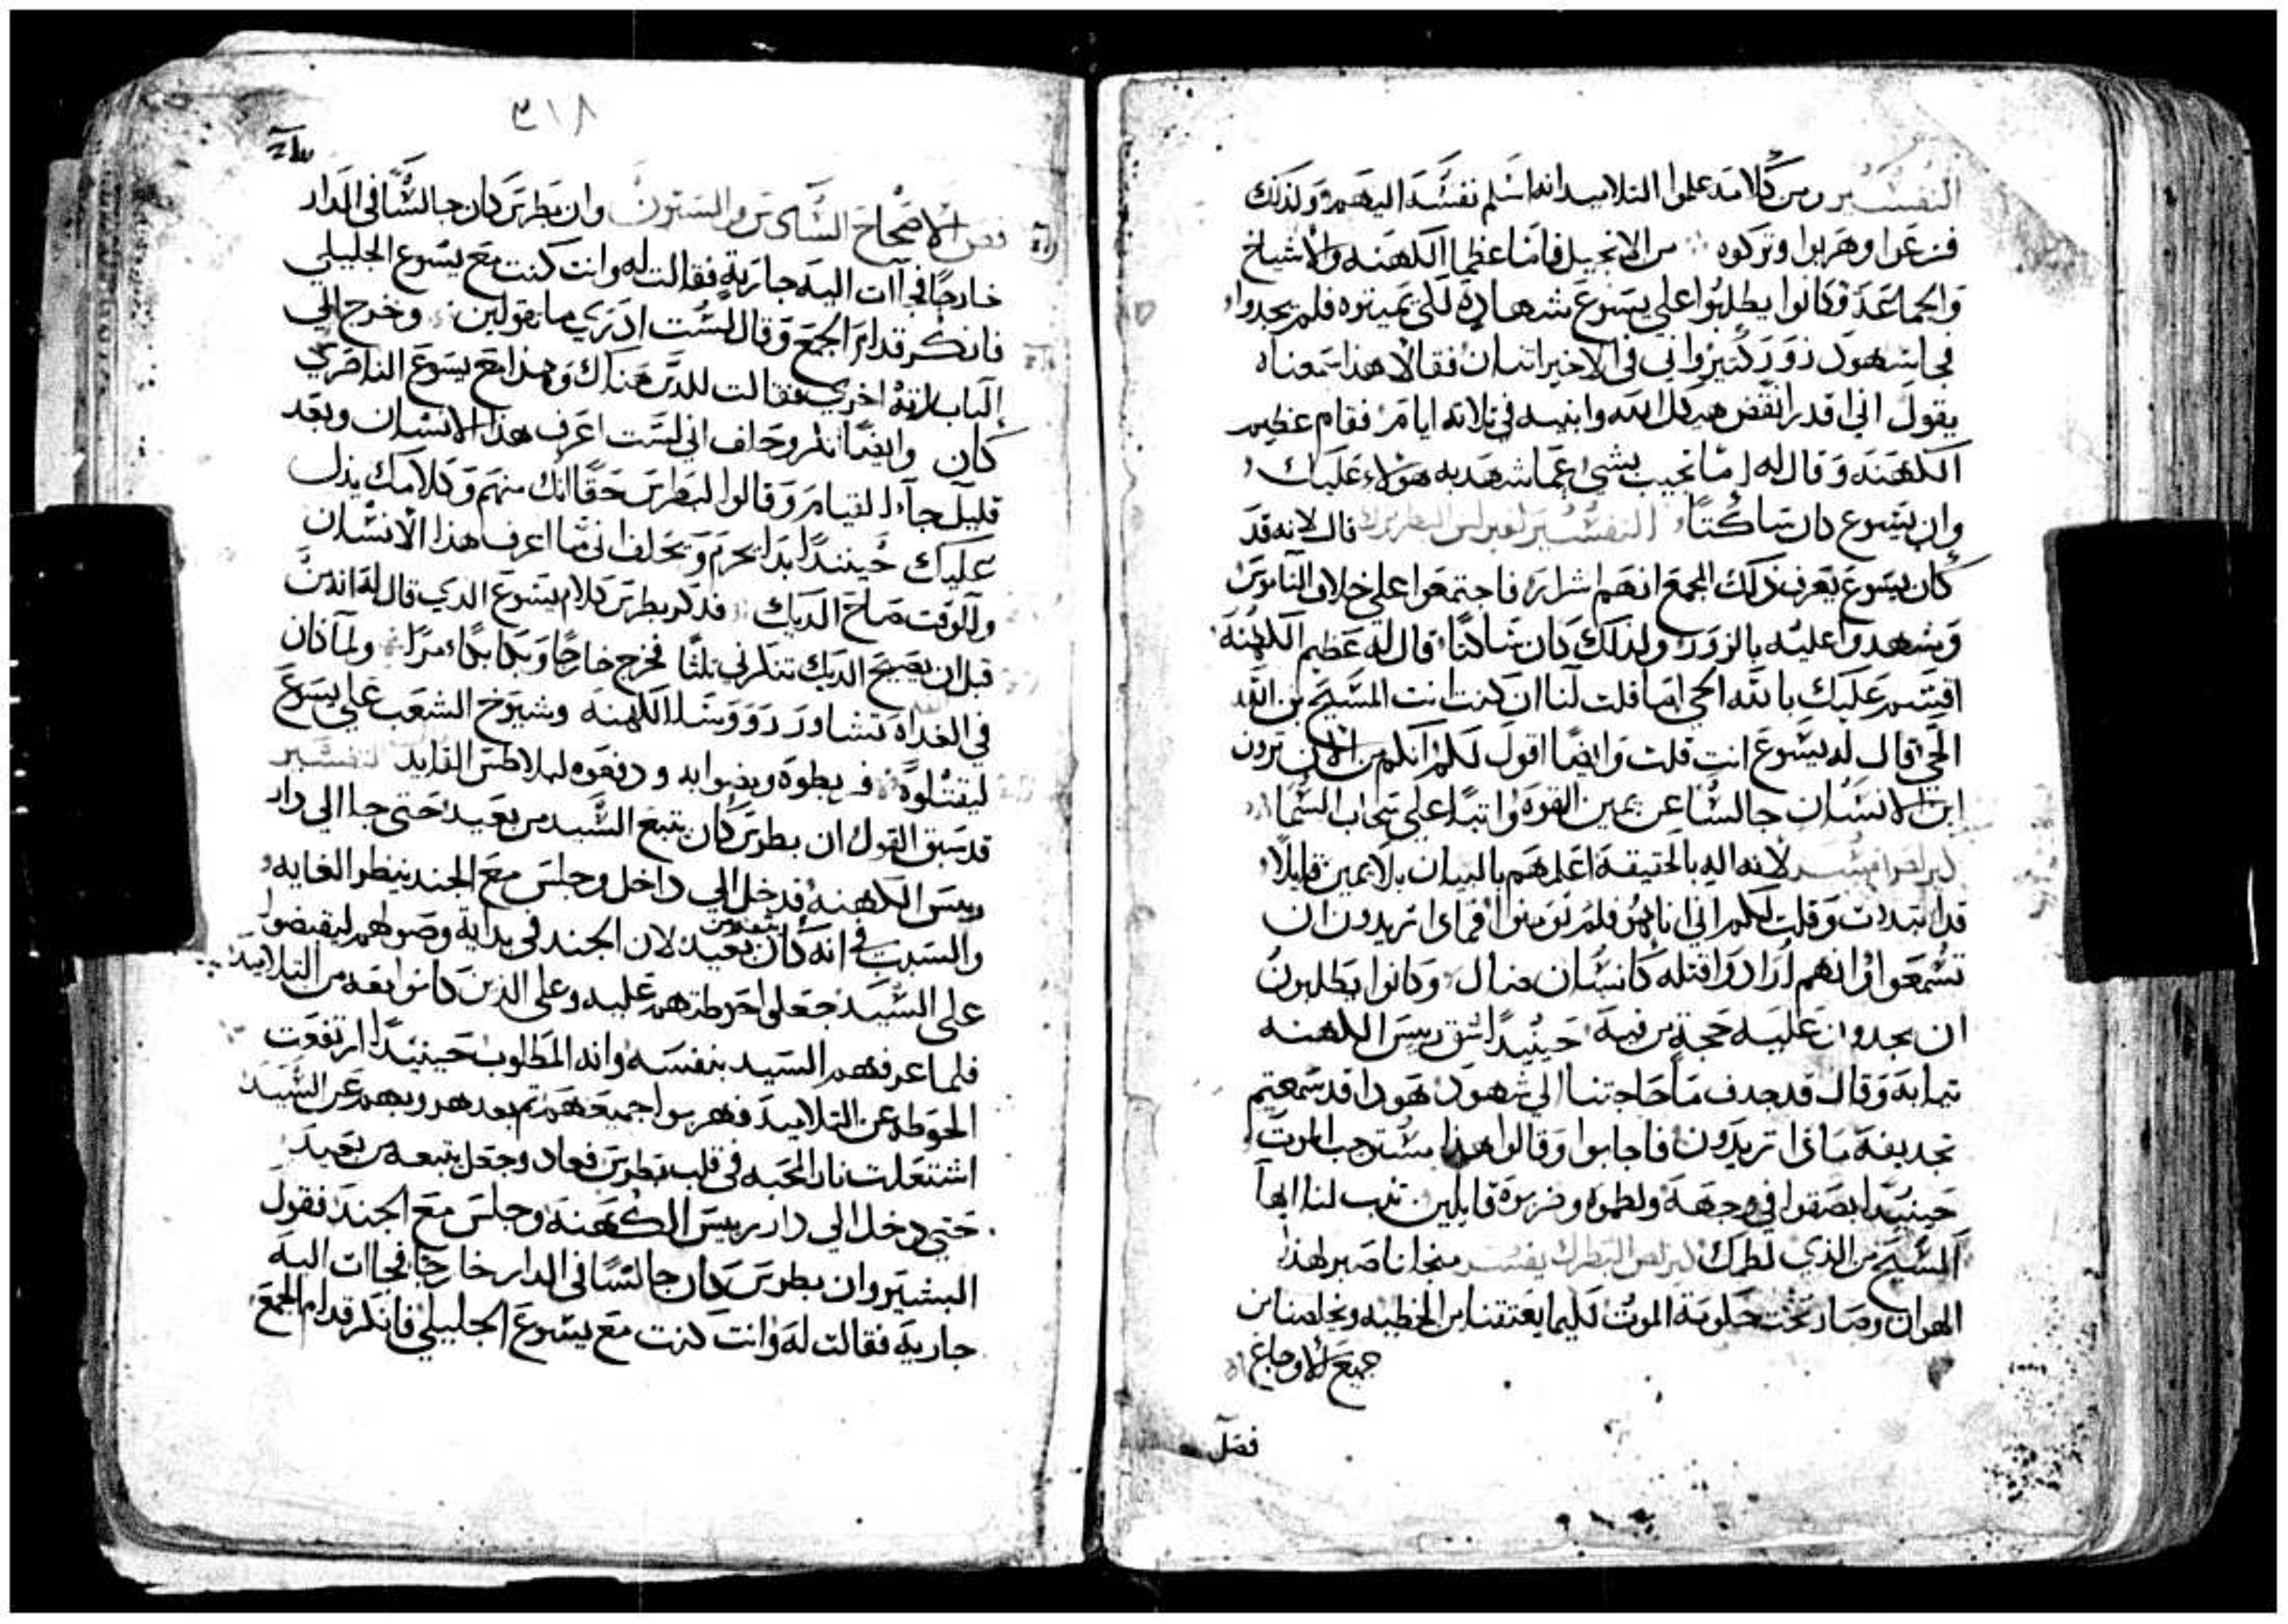 التفسير ومن كلامه علموا التلاميد انه اسلم نفسه اليهم ولذلك
فزعوا وهربوا وتركوه من الانجيل فاما عظما الكهنه والاشياخ
والجماعه وكانوا يطلبوا علي يسوع شهادة لكي يميتوه فلم يجدوا
فجا شهود زور كثيرواني في الاخير اتنان فقالا هذا سمعناه
يقول اني اقدر انقض هيكل الله وابنيه في تلاته ايام فقام عظيم
الكهنه وقال له اما تجيب بشي عما شهد به هولاء عليك
وان يسوع كان ساكتا التفسير لغبرلس البطريرك قال لانه قد
كان يسوع يعرف ذلك المجمع انهم اشرار فاجتمعوا علي خلاف الناموس
وشهدوا عليه بالزور ولذلك كان ساكتا قال له عظيم الكهنه
اقسم عليك بالله الحي اما قلت لنا ان كنت انت المسيح بن الله
الحي قال له يسوع انت قلت وايضا اقول لكم انكم من الان ترون
ابن الانسان جالسا عن يمين القوه واتيا علي سحاب السما
لانه اله بالحقيقة اعلمهم بالبيان بلا يمين قايلا
قد ابتديت وقلت لكم اني انا هو فلم تومنوا فماذا تريدون ان
تسمعوا وانهم ارادوا قتله كانسان ضال وكانوا يطلبون
ان يجدون عليه حجة من فيه حينيدا شق رييس الكهنه
تيابه وقال قد جدف ما حاجتنا الي شهود هودا قد سمعتم
تجديفه ماذا تريدون فاجابوا وقالوا هذا مستوجب الموت
حينيدا بصقوا في وجهه ولطموه وضربوه قايلين تنب لنا ايها
المسيح من الذي لطمك كيرلص البطرك يفسر منجانا صبر لهذا
الهوان وصار تحت حكومة الموت لكيما يعتقنا من الخطيه ويخلصنا من
جميع الاوجاع
فصل
٣١٨
فصل الاصحاح السادس والستون وان بطرس كان جالسا في الدار
خارجا فجاات اليه جارية فقالت له وانت كنت مع يسوع الجليلي
فانكر قدام الجمع وقال لست ادري ما تقولين وخرج الي
الباب راته اخري فقالت للدين هناك وهذا مع يسوع الناصري
كان وايضا انكر وحلف اني لست اعرف هذا الانسان وبعد
قليل جاءا القيام وقالوا لبطرس حقا انك منهم وكلامك يدل
عليك حينيدا بدا يحرم ويحلف اني ما اعرف هذا الانسان
وللوقت صاح الديك فدكر بطرس كلام يسوع الدي قال له انه من
قبل ان يصيح الديك تنكرني تلتا فخرج خارجا وبكا بكاء مرا ولما كان
في الغداه تشاور رووسا الكهنه وشيوخ الشعب علي يسوع
ليقتلوه فربطوه ومضوا به ودفعوه لبيلاطس القايد التفسير
قد سبق القول ان بطرس كان يتبع السيد من بعيد حتي جا الي دار
رييس الكهنه فدخل الي داخل وجلس مع الجند ينظر الغايه
والسبب في انه كان بعيد لان الجند في بداية وصولهم ليقبضوا
علي السيد جعلوا احوطتهم عليه وعلي الذين كانوا معه من التلاميد
فلما عرفهم السيد بنفسه وانه المطلوب حينيدا ارتفعت
الحوطه عن التلاميد فهربوا جميعهم ثم بعد هروبهم عن السيد
اشتعلت نار المحبه في قلب بطرس فعاد وجعل يتبعه من بعيد
حتي دخل الي دار رييس الكهنه وجلس مع الجند فقول
البشير وان بطرس كان جالسا في الدار خارجا فجاات اليه
جاريه فقالت له وانت كنت مع يسوع الجليلي فانكر قدام الجمع